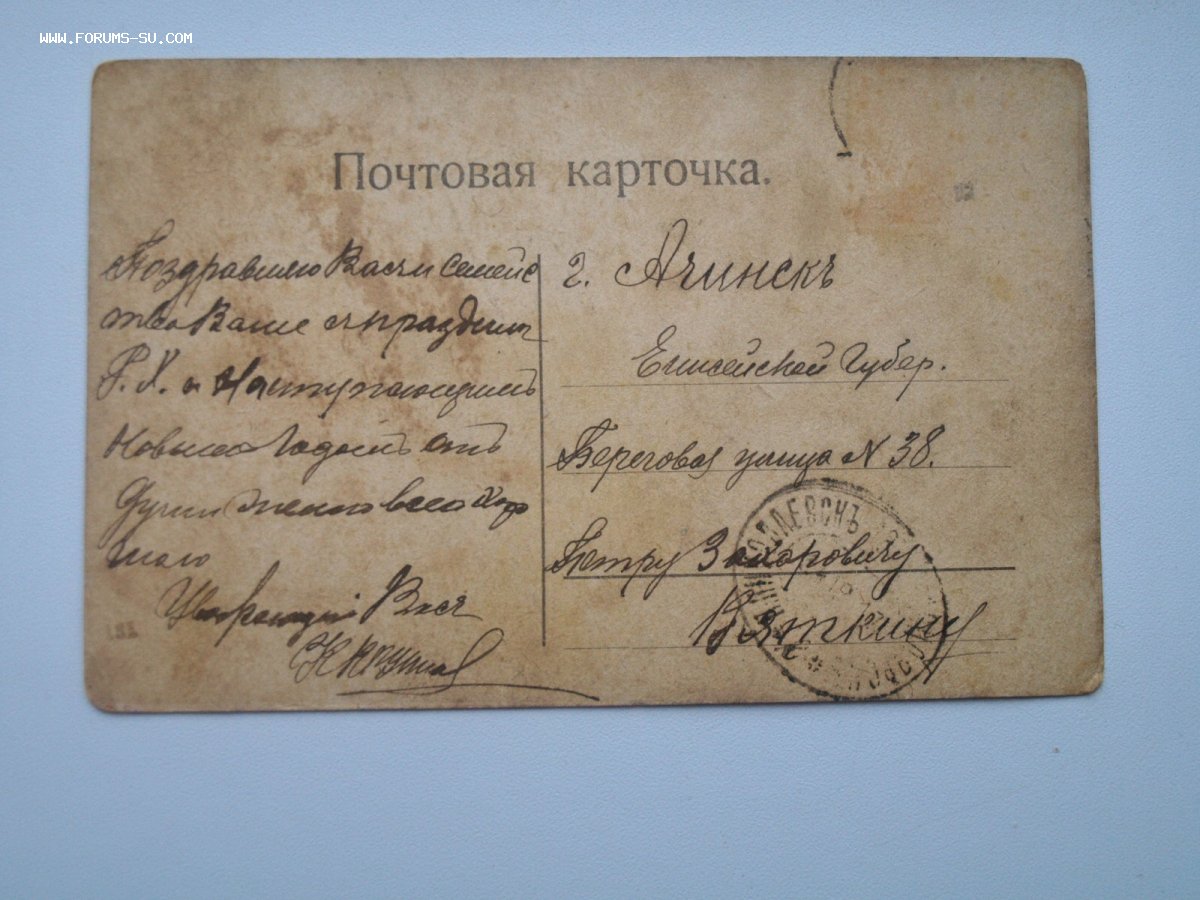 WWW.FORUMS-SU.COM
Почтовая карточка.
Поздравляю Васъ и семейс
тво Ваше съ праздник
Р. Х. и Наступающимъ
Новымъ Годомъ отъ
Души желаю всего Хор
шаго
Уважающій Васъ
г. Ачинскъ
Енисейской Губер.
Береговая улица N 38.
Петру Захаровичу
Вяткину